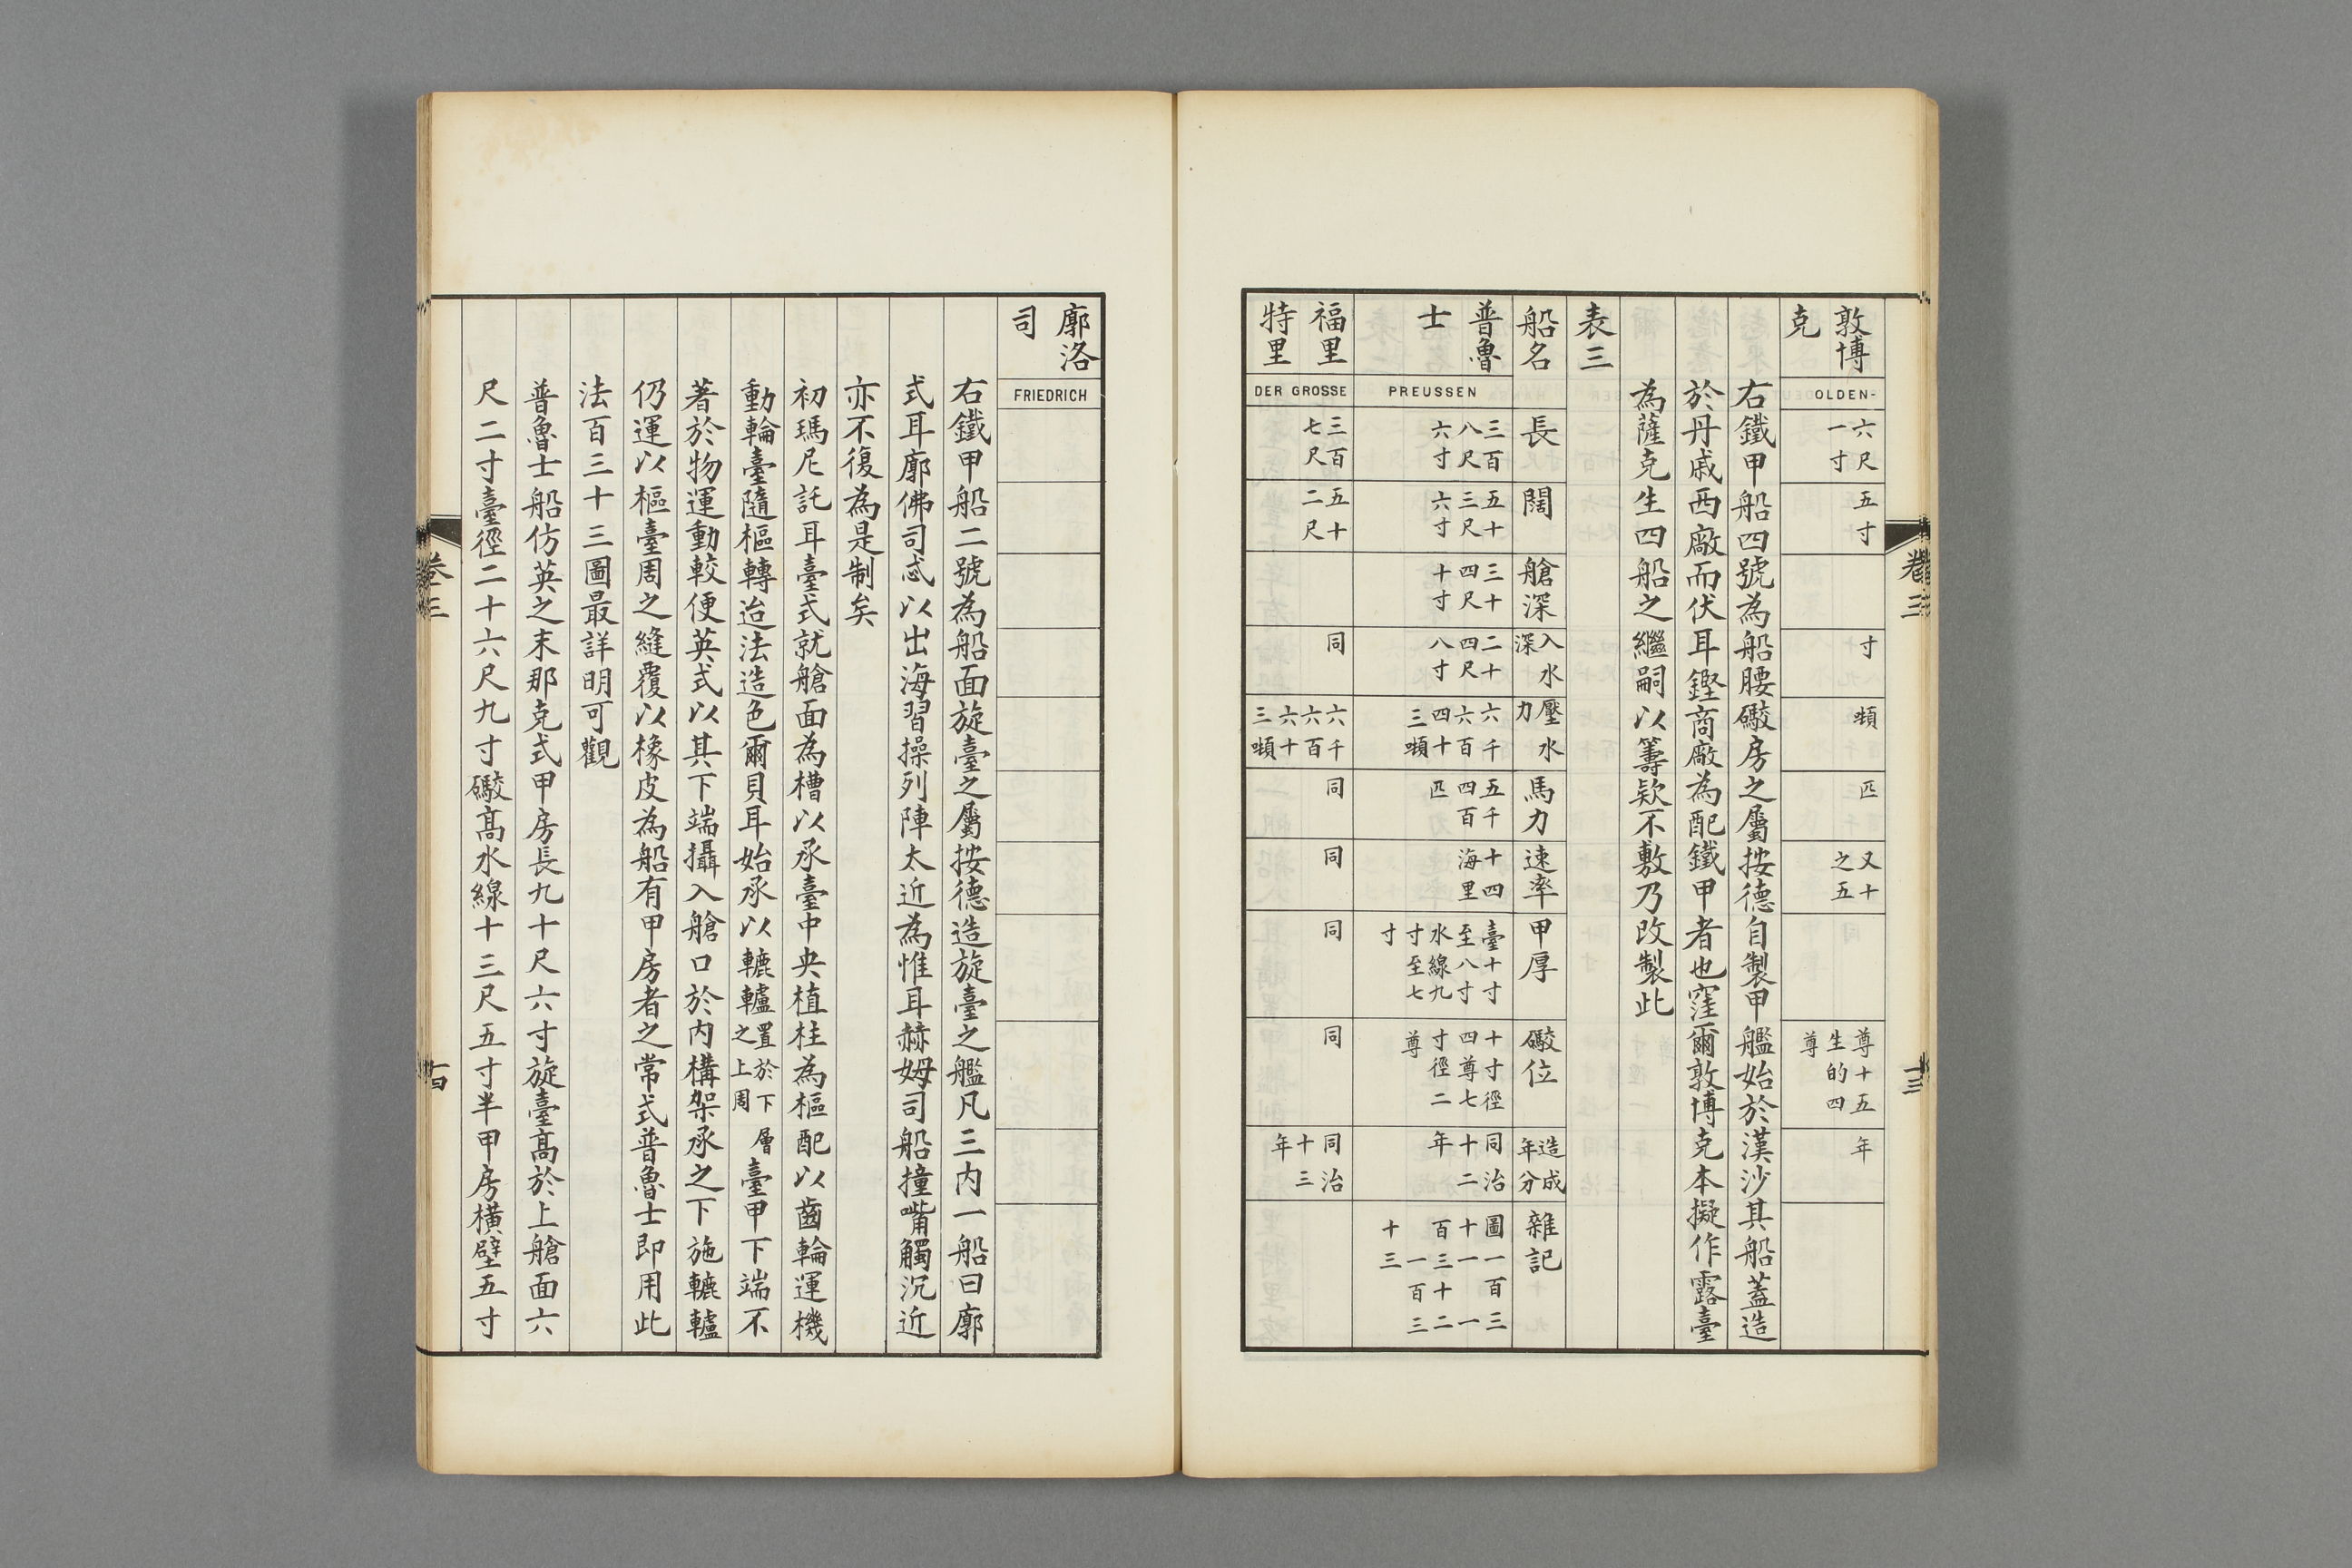 敦博
克
OLDEN-
六尺
一寸
五寸
寸
噸
匹
又十
之五
尊十五
生的四
尊
年
右鐵甲船四號為船腰礮房之屬按德自製甲艦始於漢沙其船蓋造
於丹戚西廠而伏耳鏗商廠為配鐵甲者也窪爾敦博克本擬作露臺
為薩克生四船之繼嗣以籌欵不敷乃改製此
表三
船名
長
闊
艙深
入水
深
壓水
力
馬力
速率
甲厚
礮位
造成
年分
雜記
普魯
士
PREUSSEN
三百
八尺
六寸
五十
三尺
六寸
三十
四尺
十寸
二十
四尺
八寸
六千
六百
四十
三噸
五千
四百
匹
十四
海里
臺十寸
至八寸
水線九
寸至七
寸
十寸徑
四尊七
寸徑二
尊
同治
十二
年
圖一百三
十一一
百三十二
一百三
十三
福里
特里
DER GROSSE
三百
七尺
五十
二尺
同
六千
六百
六十
三噸
同
同
同
同
同治
十三
年
卷三
十三
廓洛
司
FRIEDRICH
右鐵甲船二號為船面旋臺之屬按德造旋臺之艦凡三内一船曰廓
式耳廓佛司忒以出海習操列陣太近為惟耳赫姆司船撞嘴觸沉近
亦不復為是制矣
初瑪尼託耳臺式就艙面為槽以承臺中央植柱為樞配以齒輪運機
動輪臺隨樞轉迨法造色爾貝耳始承以轆轤置於下層之上周臺甲下端不
著於物運動較便英式以其下端攝入艙口於内構架承之下施轆轤
仍運以樞臺周之縫覆以橡皮為船有甲房者之常式普魯士即用此
法百三十三圖最詳明可觀
普魯士船仿英之末那克式甲房長九十尺六寸旋臺高於上艙面六
尺二寸臺徑二十六尺九寸礮高水線十三尺五寸半甲房橫壁五寸
卷三
十四